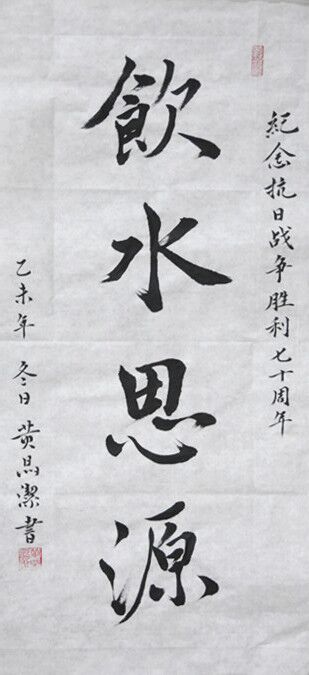 紀念抗日战争胜利七十周年
飲水思源
乙未年 冬日 黄晶潔書